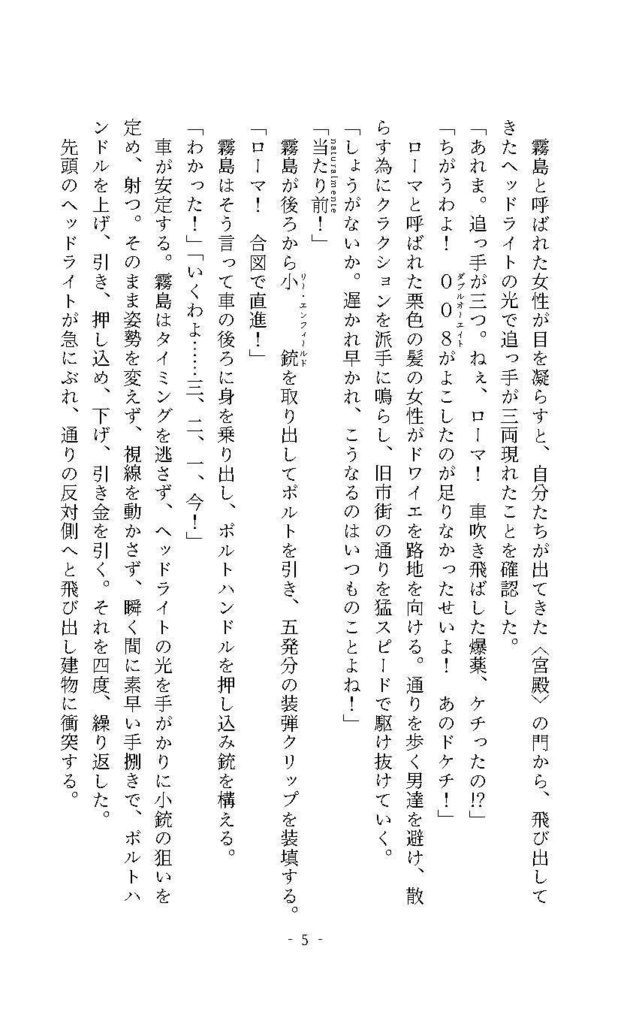 霧島と呼ばれた女性が目を凝らすと、自分たちが出てきた〈宮殿〉の門から、飛び出して
きたヘッドライトの光で追っ手が三両現れたことを確認した。
「あれま。追っ手が三つ。ねぇ、ローマ！　車吹き飛ばした爆薬、ケチったの!?」
「ちがうわよ！　００８がよこしたのが足りなかったせいよ！　あのドケチ！」
ダブルオーエイト
ローマと呼ばれた栗色の髪の女性がドワイエを路地を向ける。通りを歩く男達を避け、散
らす為にクラクションを派手に鳴らし、旧市街の通りを猛スピードで駆け抜けていく。
「しょうがないか。遅かれ早かれ、こうなるのはいつものことよね！」
「当たり前！」
naturalmente
霧島が後ろから小　　銃を取り出してボルトを引き、五発分の装弾クリップを装填する。
リー・エンフィールド
「ローマ！　合図で直進！」
霧島はそう言って車の後ろに身を乗り出し、ボルトハンドルを押し込み銃を構える。
「わかった！」「いくわよ……三、二、一、今！」
車が安定する。霧島はタイミングを逃さず、ヘッドライトの光を手がかりに小銃の狙いを
定め、射つ。そのまま姿勢を変えず、視線を動かさず、瞬く間に素早い手捌きで、ボルトハ
ンドルを上げ、引き、押し込め、下げ、引き金を引く。それを四度、繰り返した。
先頭のヘッドライトが急にぶれ、通りの反対側へと飛び出し建物に衝突する。
- 5 -